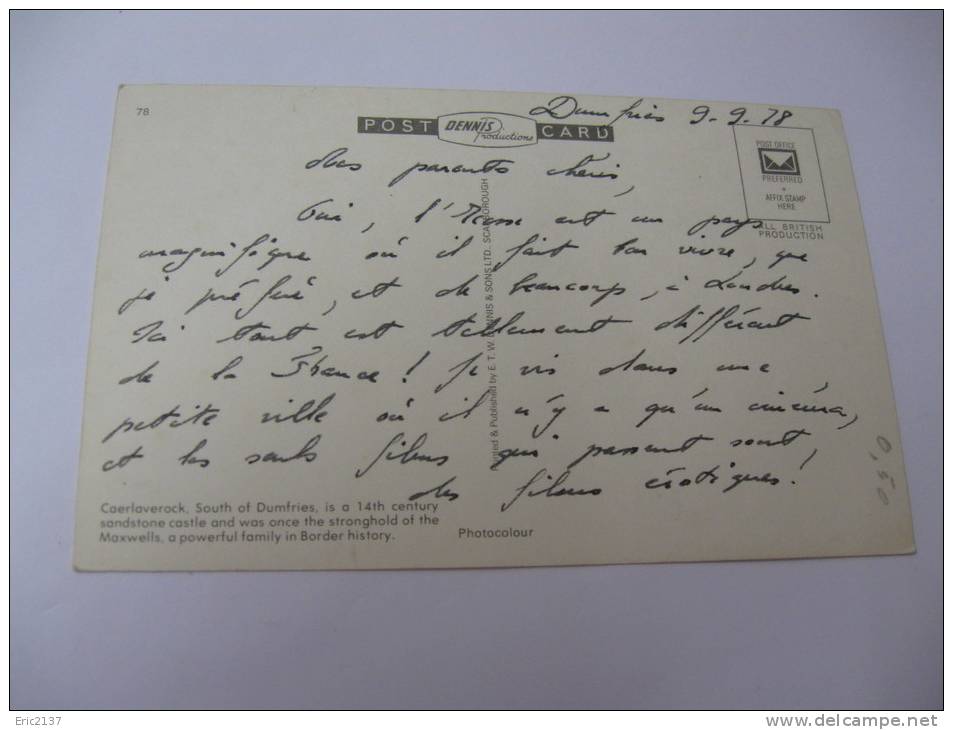 78
POST DENNIS Productions CARD
Dumfries 9-9-78
POST OFFICE
PREFERRED
AFFIX STAMP
HERE
ALL BRITISH
PRODUCTION
Mes parents chéris,
Oui, l'Ecosse est un pays
magnifique où il fait bon vivre, que
je préfère, et de beaucoup, à Londres.
Ici tout est tellement différent
de la France! Je vis dans une
petite ville où il n'y a qu'un cinéma,
et les seuls films qui passent sont
des films érotiques!
0,50
Printed & Published by E. T. W. DENNIS & SONS LTD., SCARBOROUGH
Caerlaverock, South of Dumfries, is a 14th century
sandstone castle and was once the stronghold of the
Maxwells, a powerful family in Border history.
Photocolour
Eric2137
www.delcampe.net